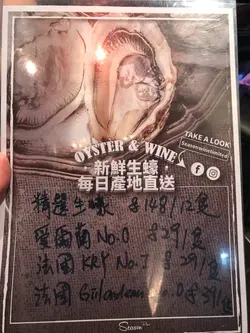 OYSTER & WINE
TAKE A LOOK
Seasonwinelimited
新鮮生蠔
每日產地直送
精選生蠔 $148/12隻
愛爾蘭 No.0 $29/隻
法國 KRY No.1 $29/隻
法國 No.0 $39/隻
Season